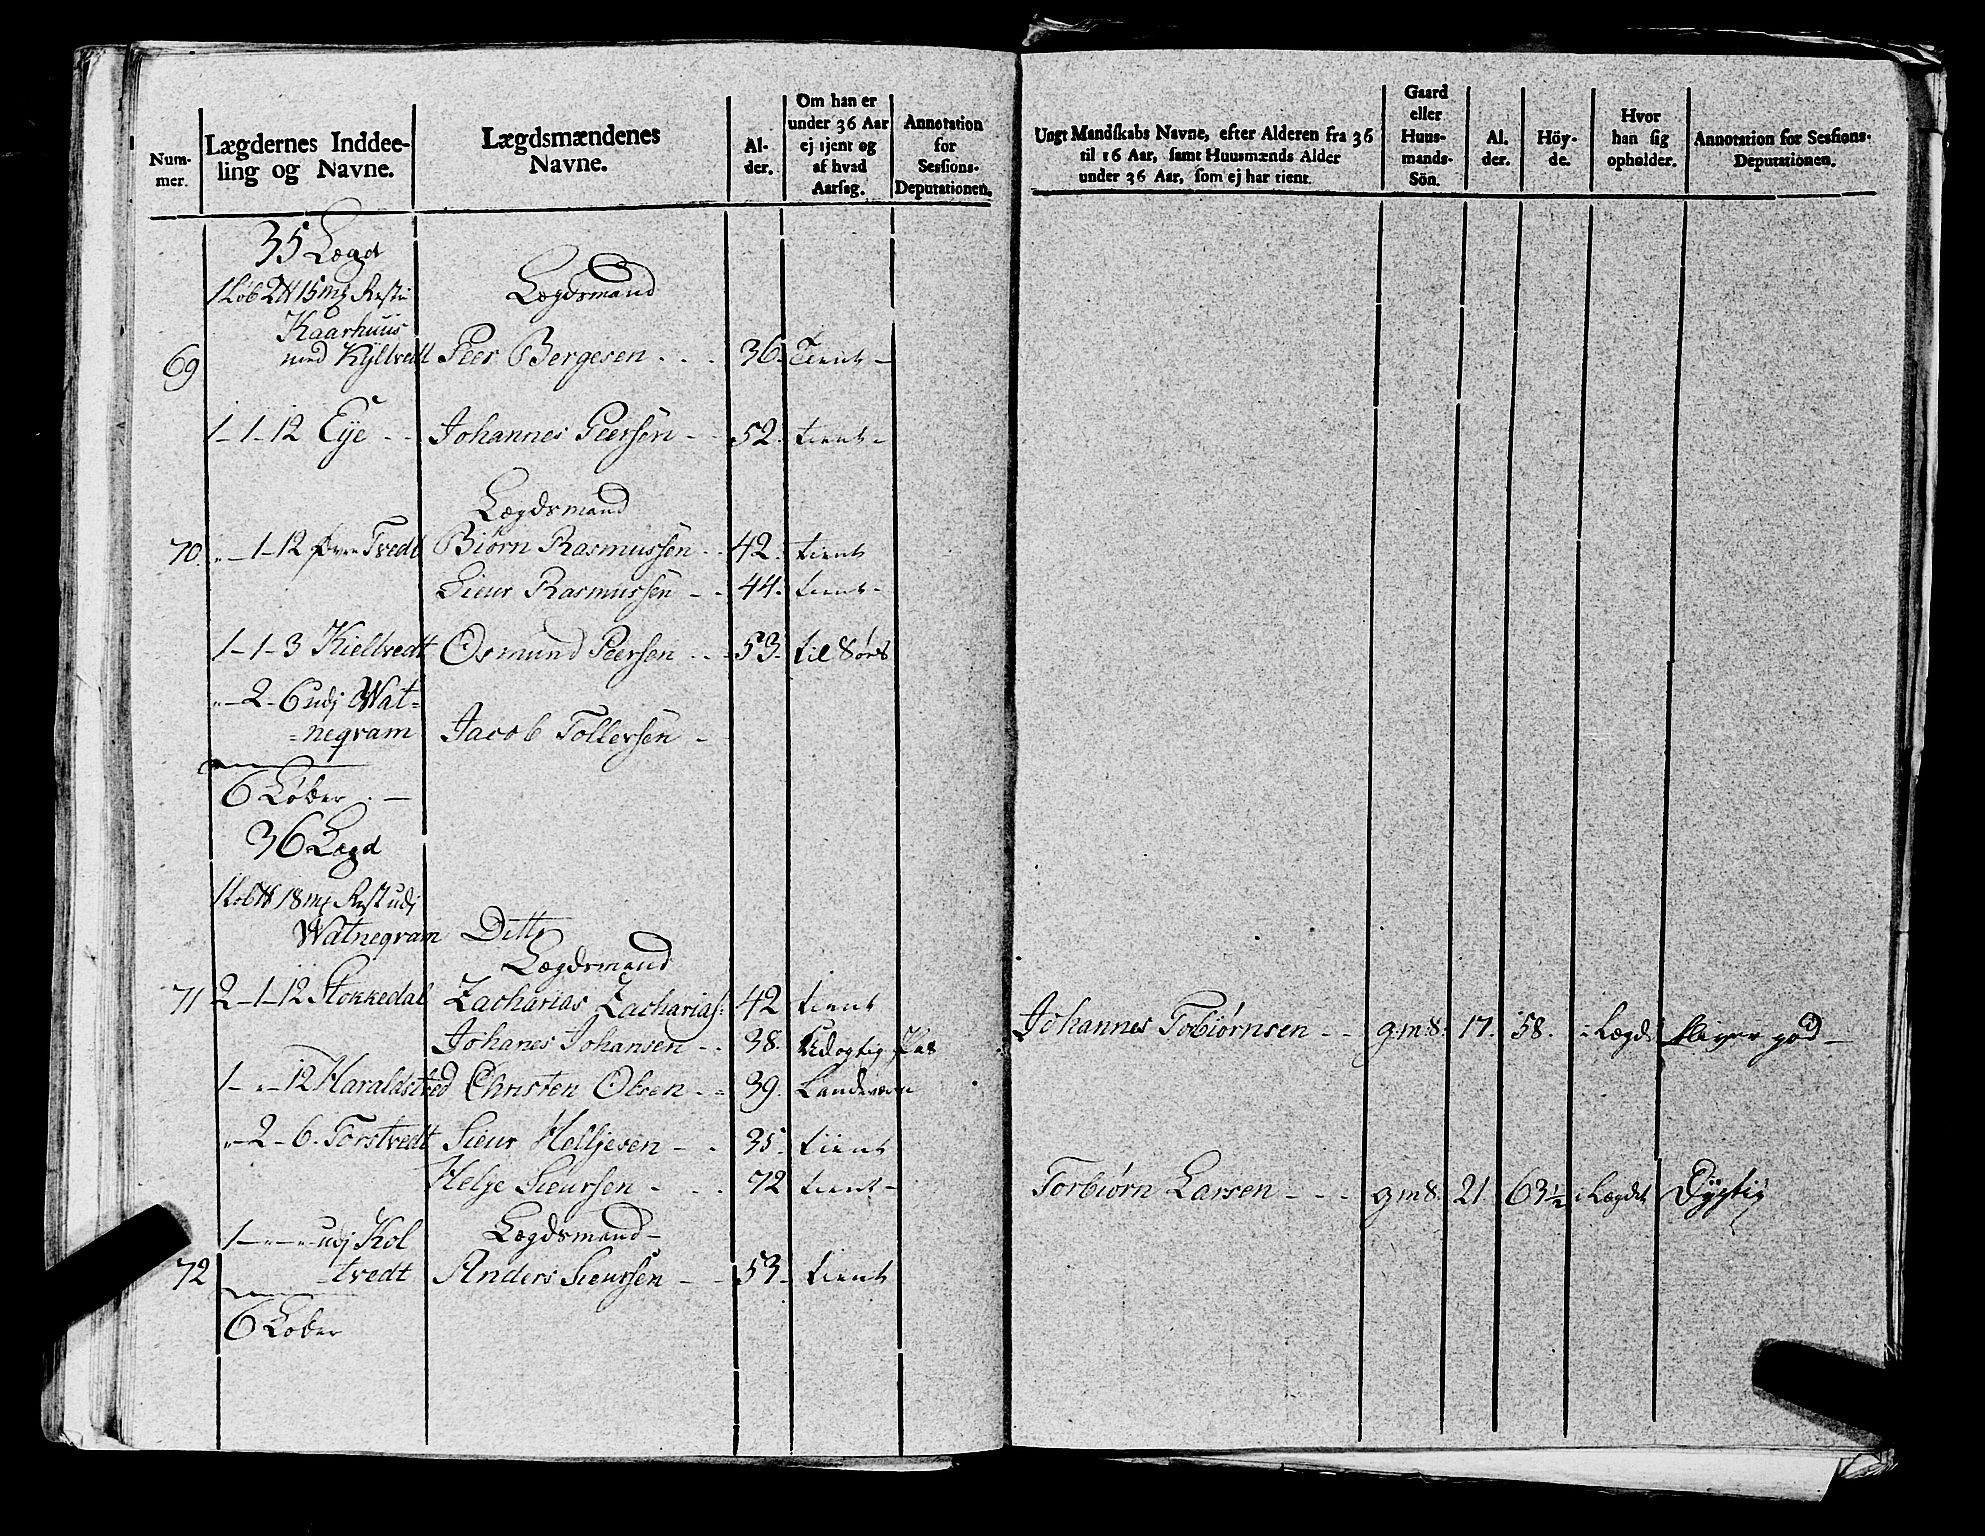 Num-
mer.
Lægdernes Inddee-
ling og Navne.
Lægdsmændenes
Navne.
Al-
der.
Om han er
under 36 Aar
ej tjent og
af hvad
Aarsag.
Annotation
for
Sessions-
Deputationen.
35 Lægd
1 Løb 2 15 mz Rest i
Lægdsmand
Kaarhuus
69 med Kyltvedt Peer Bergesen . . . 36. Tient -
1-1-12 Eye - - Johannes Peersen - - 52. tient -
Lægdsmand
70. „-1-12 Øvre Tvedt Biørn Rasmussen - - 42. tient
Sieur Rasmussen - - 44. tient -
1-1-3 Kieltvedt Osmund Peersen . . - 53. til Søes
„-2-6 udj Wat-
-negram Jacob Tollersen -
6 Løber . -
36 Lægd
1 Løb 18 mz Rest udj
Watnegram Ditto
Lægdsmand
71 2-1-12 Stokkedal Zacharias Zacharias: 42 tient
Johanes Johansen - - 38. Udogtig Pas
1-„-12 Haraldstved Christen Olsen - - 39. Landeværn
„-2-6. Torstvedt Sieur Helljesen - - 35. tient
Helje Sieursen - - - 72 tient -
1-„-„- udj Kol Lægdsmand -
72 -tvedt Anders Sieursen - - 53 - tient
6 Løber
Ungt Mandskabs Navne, efter Alderen fra 36
til 16 Aar, samt Huusmænds Alder
under 36 Aar, som ej har tient.
Gaard
eller
Huus-
mands-
Sön.
Al.
der.
Höy-
de.
Hvor
han sig
opholder.
Annotation for Sessions-
Deputationen.
Johannes Torbiørnsen - - g.m:s: 17. 58. i Lægd: bliver god -
Torbiørn Larsen - - - g m s. 21 63 1/2 i Lægdet Dygtig